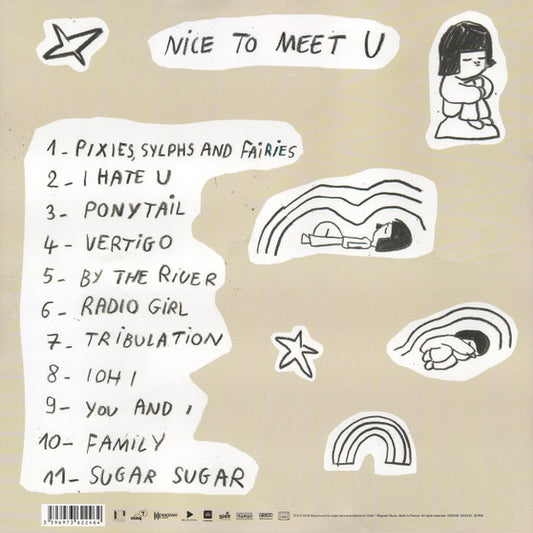 NiCE TO MEET U
1_ PiXiES, SYLPHS AND FAiRiES
2_ I HATE U
3_ PONYTAiL
4_ VERTiGO
5_ BY THE RiVER
6_ RADiO GiRL
7_ TRiBULATiON
8_ IOH I
9_ YOU AND I
10_ FAMiLY
11_ SUGAR SUGAR
3596973622466